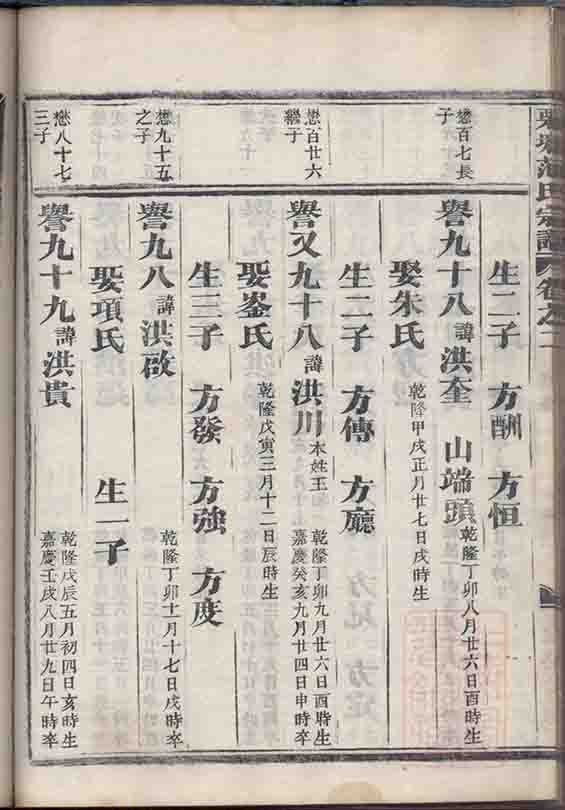 范氏宗譜 卷之二
生二子 方酬 方恒
懋百七長
子
譽九十八 諱洪奎 山端頭 乾隆丁卯八月廿六日酉時生
娶朱氏 乾隆甲戌正月廿七日戌時生
生二子 方傳 方廳
懋百廿六
繼子
譽又九十八 諱洪川 本姓王 乾隆丁卯九月廿六日酉時生
嘉慶癸亥九月廿四日申時卒
娶崟氏 乾隆戊寅三月十二日辰時生
生三子 方發 方強 方度
懋九十五
之子
譽九八 諱洪啟 乾隆丁卯十一月十七日戌時卒
娶項氏 生一子
懋八十七
三子
譽九十九 諱洪貴 乾隆戊辰五月初四日亥時生
嘉慶壬戌八月廿九日午時卒